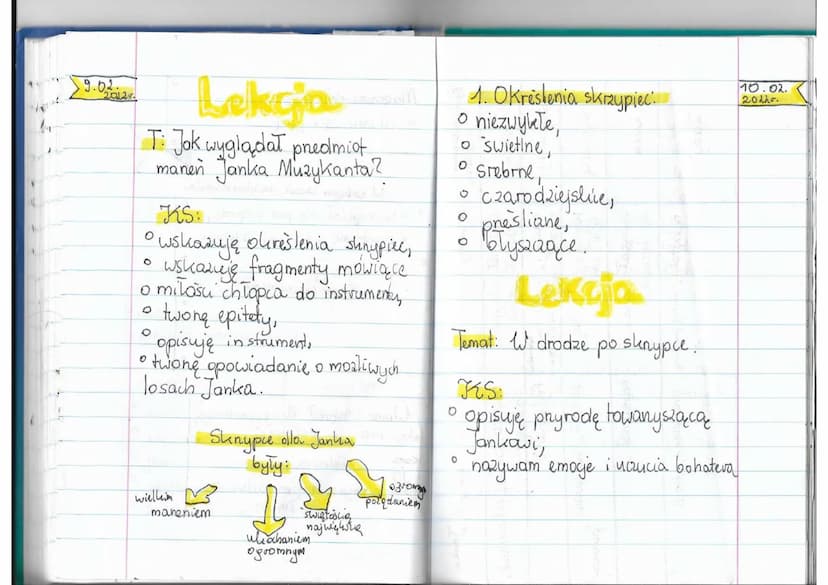 9.02.
2022r.
Lekcja
T: Jak wyglądał przedmiot
marzeń Janka Muzykanta?
KS:
° wskazuję określenia skrzypiec,
° wskazuję fragmenty mówiące
o miłości chłopca do instrumentu,
° tworzę epitety,
° opisuję instrument,
° tworzę opowiadanie o możliwych
losach Janka.
Skrzypce dla Janka
były:
wielkim
marzeniem
ukochaniem
ogromnym
świętością
największą
ogromnym
pożądaniem
10.02.
2022r.
1. Określenia skrzypiec:
° niezwykłe,
° świetlne,
° srebrne,
° czarodziejskie,
° prześliczne,
° błyszczące.
Lekcja
Temat: W drodze po skrzypce.
KS:
° opisuję przyrodę towarzyszącą
Jankowi,
° nazywam emocje i uczucia bohatera